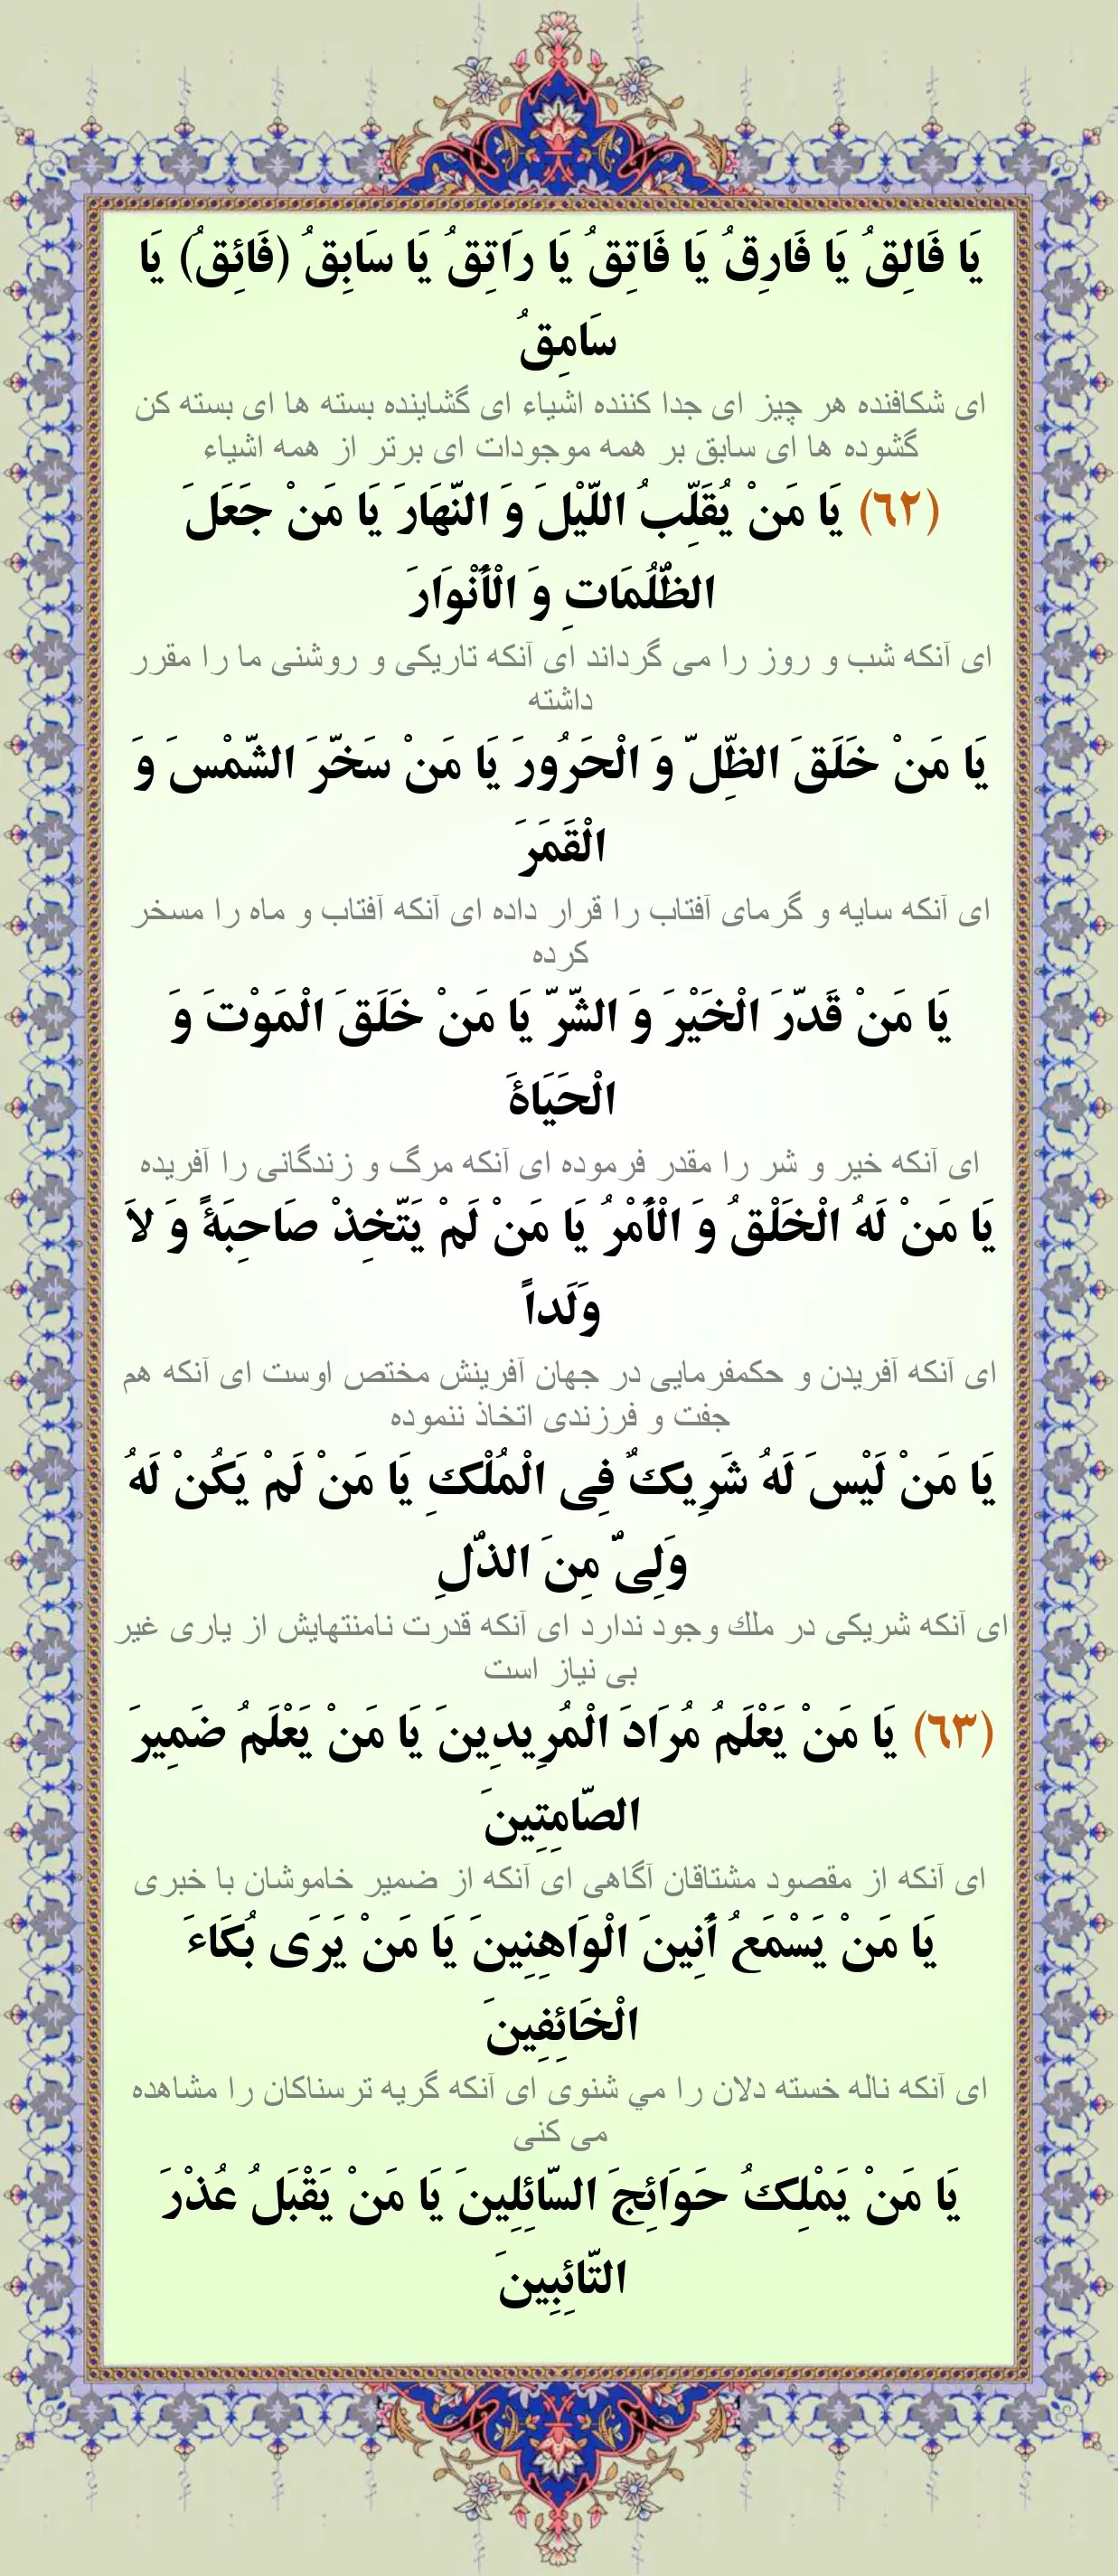 يَا فَالِقُ يَا فَارِقُ يَا فَاتِقُ يَا رَاتِقُ يَا سَابِقُ (فَائِقُ) يَا
سَامِقُ
ای شکافنده هر چیز ای جدا کننده اشیاء ای گشاینده بسته ها ای بسته کن
گشوده ها ای سابق بر همه موجودات ای برتر از همه اشیاء
(٦٢) يَا مَنْ يُقَلِّبُ اللَّيْلَ وَ النَّهَارَ يَا مَنْ جَعَلَ
الظُّلُمَاتِ وَ الْأَنْوَارَ
ای آنکه شب و روز را می گرداند ای آنکه تاریکی و روشنی ما را مقرر
داشته
يَا مَنْ خَلَقَ الظِّلَّ وَ الْحَرُورَ يَا مَنْ سَخَّرَ الشَّمْسَ وَ
الْقَمَرَ
ای آنکه سایه و گرمای آفتاب را قرار داده ای آنکه آفتاب و ماه را مسخر
کرده
يَا مَنْ قَدَّرَ الْخَيْرَ وَ الشَّرَّ يَا مَنْ خَلَقَ الْمَوْتَ وَ
الْحَيَاةَ
ای آنکه خیر و شر را مقدر فرموده ای آنکه مرگ و زندگانی را آفریده
يَا مَنْ لَهُ الْخَلْقُ وَ الْأَمْرُ يَا مَنْ لَمْ يَتَّخِذْ صَاحِبَةً وَ لاَ
وَلَداً
ای آنکه آفریدن و حکمفرمایی در جهان آفرینش مختص اوست ای آنکه هم
جفت و فرزندی اتخاذ ننموده
يَا مَنْ لَيْسَ لَهُ شَرِيكٌ فِی الْمُلْكِ يَا مَنْ لَمْ يَكُنْ لَهُ
وَلِیٌّ مِنَ الذُّلِّ
ای آنکه شریکی در ملك وجود ندارد ای آنکه قدرت نامنتهایش از یاری غیر
بی نیاز است
(٦٣) يَا مَنْ يَعْلَمُ مُرَادَ الْمُرِيدِينَ يَا مَنْ يَعْلَمُ ضَمِيرَ
الصَّامِتِينَ
ای آنکه از مقصود مشتاقان آگاهی ای آنکه از ضمیر خاموشان با خبری
يَا مَنْ يَسْمَعُ أَنِينَ الْوَاهِنِينَ يَا مَنْ يَرَی بُكَاءَ
الْخَائِفِينَ
ای آنکه ناله خسته دلان را مي شنوی ای آنکه گریه ترسناکان را مشاهده
می کنی
يَا مَنْ يَمْلِكُ حَوَائِجَ السَّائِلِينَ يَا مَنْ يَقْبَلُ عُذْرَ
التَّائِبِينَ